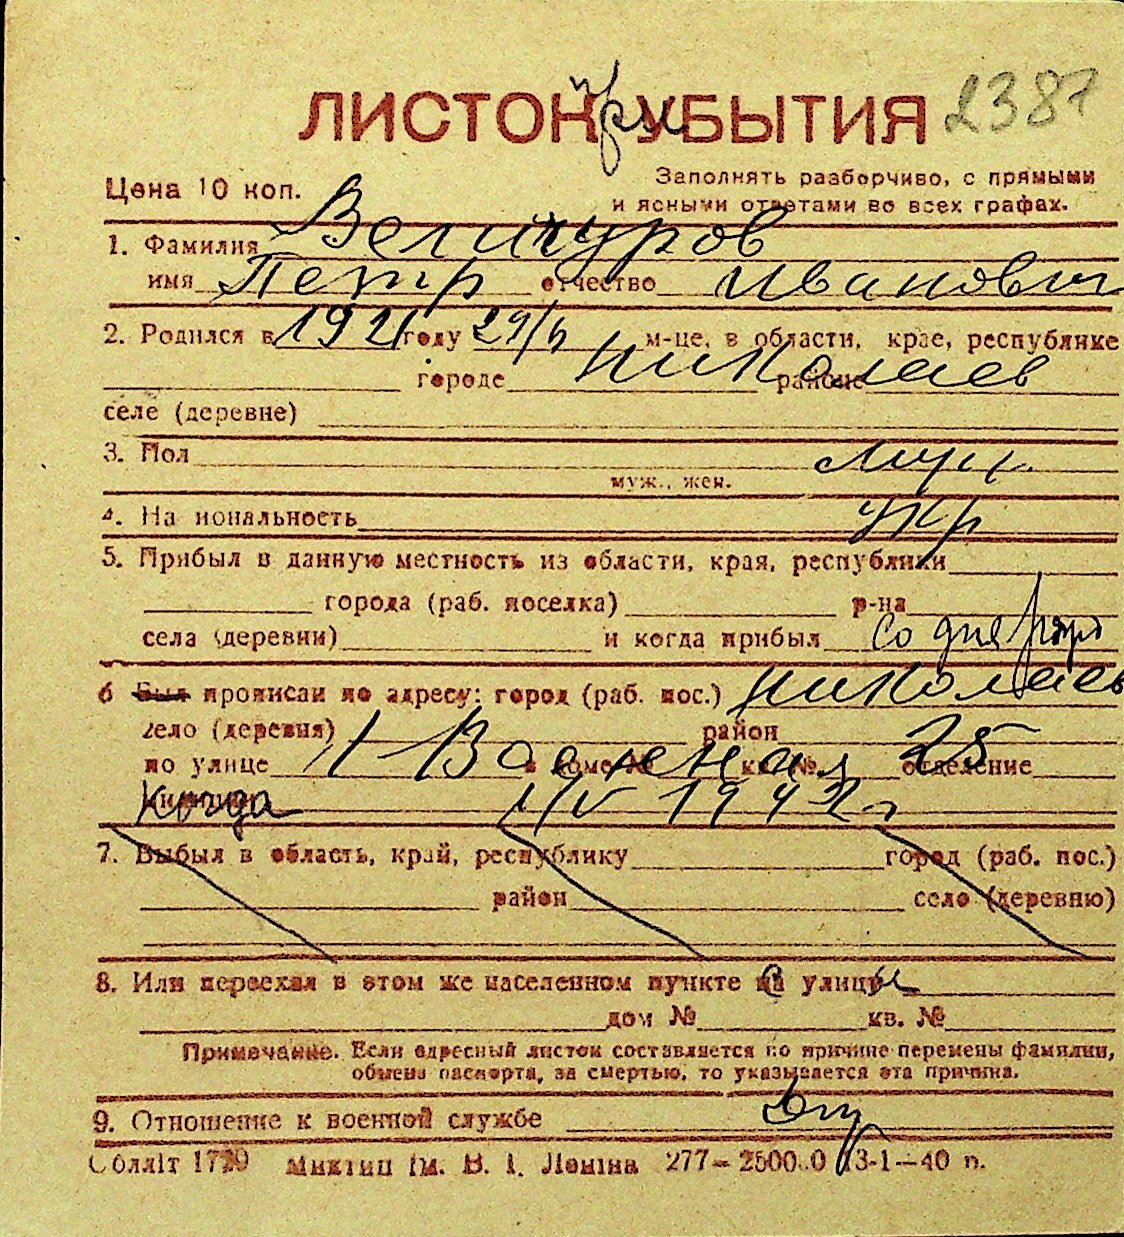 ЛИСТОК при УБЫТИЯ 2387
Цена 10 коп.
Заполнять разборчиво, с прямыми
и ясными ответами во всех графах.
1. Фамилия Величуров
имя Петр отчество Иванович
2. Родился в 1921 году 29/6 м-це, в области, крае, республике
городе Николаев районе
селе (деревне)
3. Пол муж.
муж., жен.
4. На иональность укр
5. Прибыл в данную местность из области, края, республики
города (раб. поселка) р-на
села (деревни) и когда прибыл со дня рожд
6 Был прописан по адресу: город (раб. пос.) Николаев
село (деревня) район
по улице 1 Военная 25 отделение
милиции Когда 1942 г
7. Выбыл в область, край, республику город (раб. пос.)
район село (деревню)
8. Или переехал в этом же населенном пункте с улицы
дом № кв. №
Примечание. Если адресный листок составляется по причине перемены фамилии,
обмена паспорта, за смертью, то указывается эта причина.
9. Отношение к военной службе
Облліт 1729 Миктип ім. В. І. Леніна 277—2500.0 13-1—40 п.